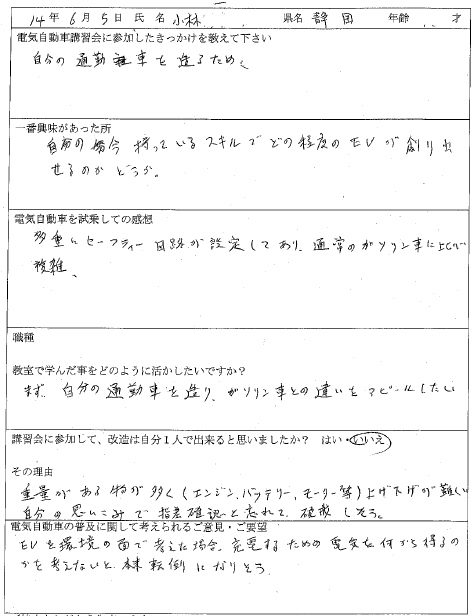 14年 6月 5日 氏名 小林 県名 静岡 年齢 才
電気自動車講習会に参加したきっかけを教えて下さい
自分の通勤車を造るため、
一番興味があった所
自前の場合 持っているスキルでどの程度のEVが創り出
せるのかどうか。
電気自動車を試乗しての感想
多重にセーフティー回路が設定してあり、通常のガソリン車に比べ
複雑、
職種
教室で学んだ事をどのように活かしたいですか？
まず、自分の通勤車を造り、ガソリン車との違いをアピールしたい
講習会に参加して、改造は自分1人で出来ると思いましたか？ はい・いいえ
その理由
重量がある物が多く(エンジン、バッテリー、モーター等)上げ下げが難しい
自分の思いこみで指差確認を忘れて、破損しそう。
電気自動車の普及に関して考えられるご意見・ご要望
EVを環境の面で考えた場合、充電するための電気を何から得るの
かを考えないと、本末転倒になりそう